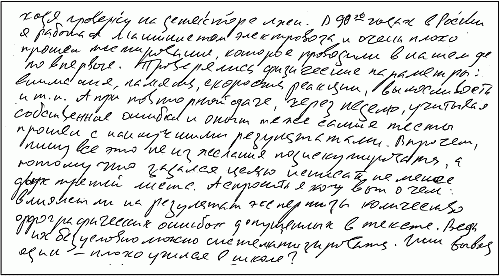 ходя проверку на детекторе лжи. В 90ые годах в России
я работал машинистом электровоза и очень плохо
прошел тестирование, которое проводили в нашем де
по впервые. Проверялись физические параметры:
внимание, память, скорость реакции, выносливость
и т.п. А при повторной сдаче, через неделю, учитывая
собственные ошибки и опыт те же самые тесты
прошел с наилучшими результатами. Впрочем,
пишу все это не из желания подискутировать, а
потому что задался целью исписать не менее
двух третей листа. А спросить я хочу вот о чем:
влияет ли на результат экспертизы количество
орфографических ошибок допущенных в тексте. Ведь
их безусловно можно систематизировать. Или вывод
один – плохо учился в школе?